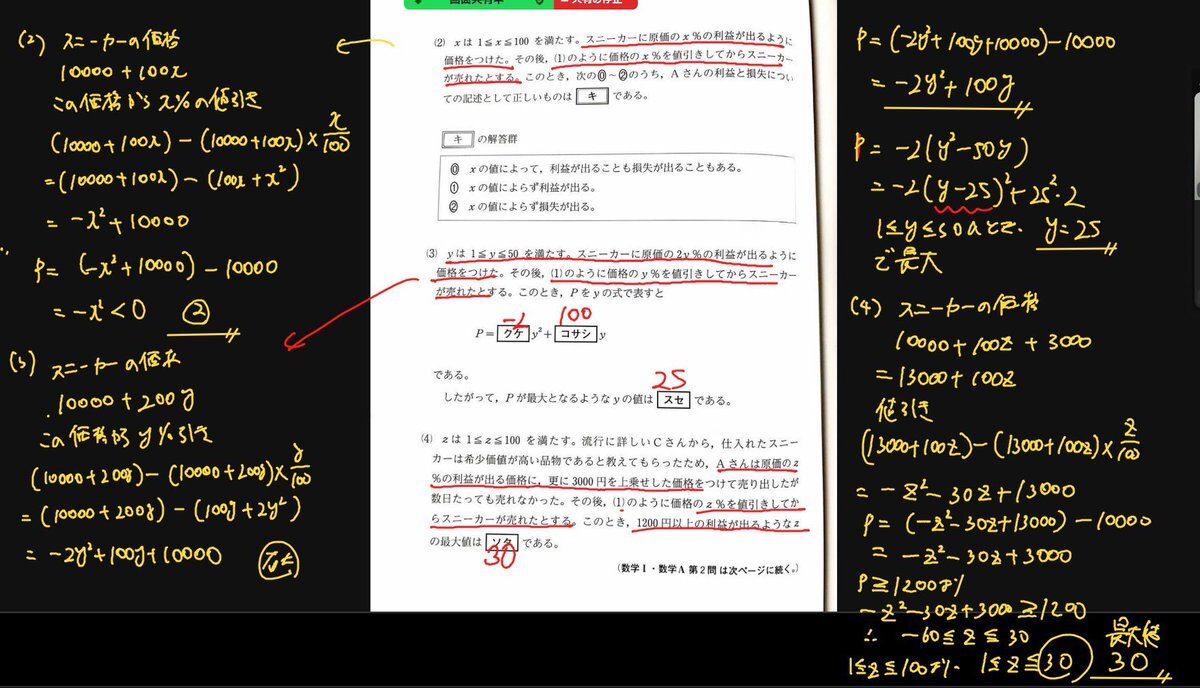 画面共有中
共有の停止
(2) スニーカーの価格
10000+100x
この価格から x%の値引き
(10000+100x)-(10000+100x)×x/100
=(10000+100x)-(100x+x²)
= -x²+10000
P= (-x²+10000)-10000
= -x²<0 ②
(3) スニーカーの価格
10000+200y
この価格から y%引き
(10000+200y)-(10000+200y)×y/100
=(10000+200y)-(100y+2y²)
= -2y²+100y+10000
(2) xは 1≦x≦100 を満たす。スニーカーに原価の x%の利益が出るように
価格をつけた。その後，(1)のように価格の x%を値引きしてからスニーカー
が売れたとする。このとき，次の⓪～②のうち，Aさんの利益と損失につい
ての記述として正しいものは キ である。
キ の解答群
⓪ xの値によって，利益が出ることも損失が出ることもある。
① xの値によらず利益が出る。
② xの値によらず損失が出る。
(3) yは 1≦y≦50 を満たす。スニーカーに原価の 2y%の利益が出るように
価格をつけた。その後，(1)のように価格の y%を値引きしてからスニーカー
が売れたとする。このとき，Pをyの式で表すと
-2 100
P= クケ y²+ コサシ y
である。
25
したがって，Pが最大となるようなyの値は スセ である。
(4) zは 1≦z≦100 を満たす。流行に詳しいCさんから，仕入れたスニー
カーは希少価値が高い品物であると教えてもらったため，Aさんは原価の z
%の利益が出る価格に，更に 3000 円を上乗せした価格をつけて売り出したが
数日たっても売れなかった。その後，(1)のように価格の z%を値引きしてか
らスニーカーが売れたとする。このとき，1200 円以上の利益が出るようなz
の最大値は ソタ である。
30
(数学Ⅰ・数学A 第2問は次ページに続く。)
P=(-2y²+100y+10000)-10000
= -2y²+100y
P= -2(y²-50y)
= -2(y-25)²+25²・2
1≦y≦50のとき、 y=25
で最大
(4) スニーカーの価格
10000+100z+3000
=13000+100z
値引き
(13000+100z)-(13000+100z)×z/100
= -z²-30z+13000
P= (-z²-30z+13000)-10000
= -z²-30z+3000
P≧1200より
-z²-30z+3000≧1200
∴ -60≦z≦30
1≦z≦100より、 1≦z≦30 最大値 30